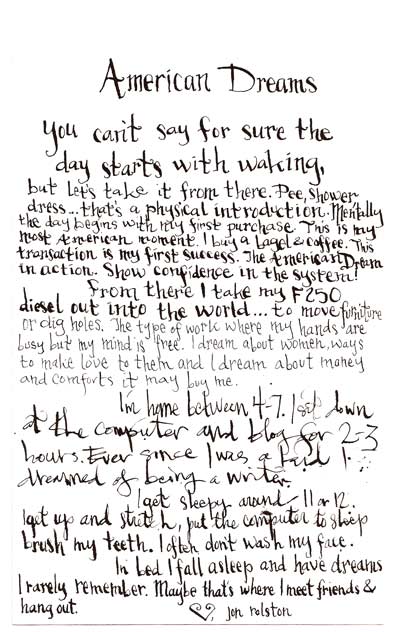 American Dreams
you can't say for sure the
day starts with waking,
but let's take it from there. Pee, shower
dress... that's a physical introduction. Mentally
the day begins with my first purchase. This is my
most American moment. I buy a bagel & coffee. This
transaction is my first success. The American Dream
in action. Show confidence in the system!
From there I take my F250
diesel out into the world... to move furniture
or dig holes. The type of work where my hands are
busy but my mind is free. I dream about women, ways
to make love to them and I dream about money
and comforts it may buy me.
I'm home between 4-7. I sit down
at the computer and blog for 2-3
hours. Ever since I was a kid I
dreamed of being a writer.
I get sleepy around 11 or 12.
I get up and stretch, put the computer to sleep
brush my teeth. I often don't wash my face.
In bed I fall asleep and have dreams
I rarely remember. Maybe that's where I meet friends &
hang out.
♡, jon rolston